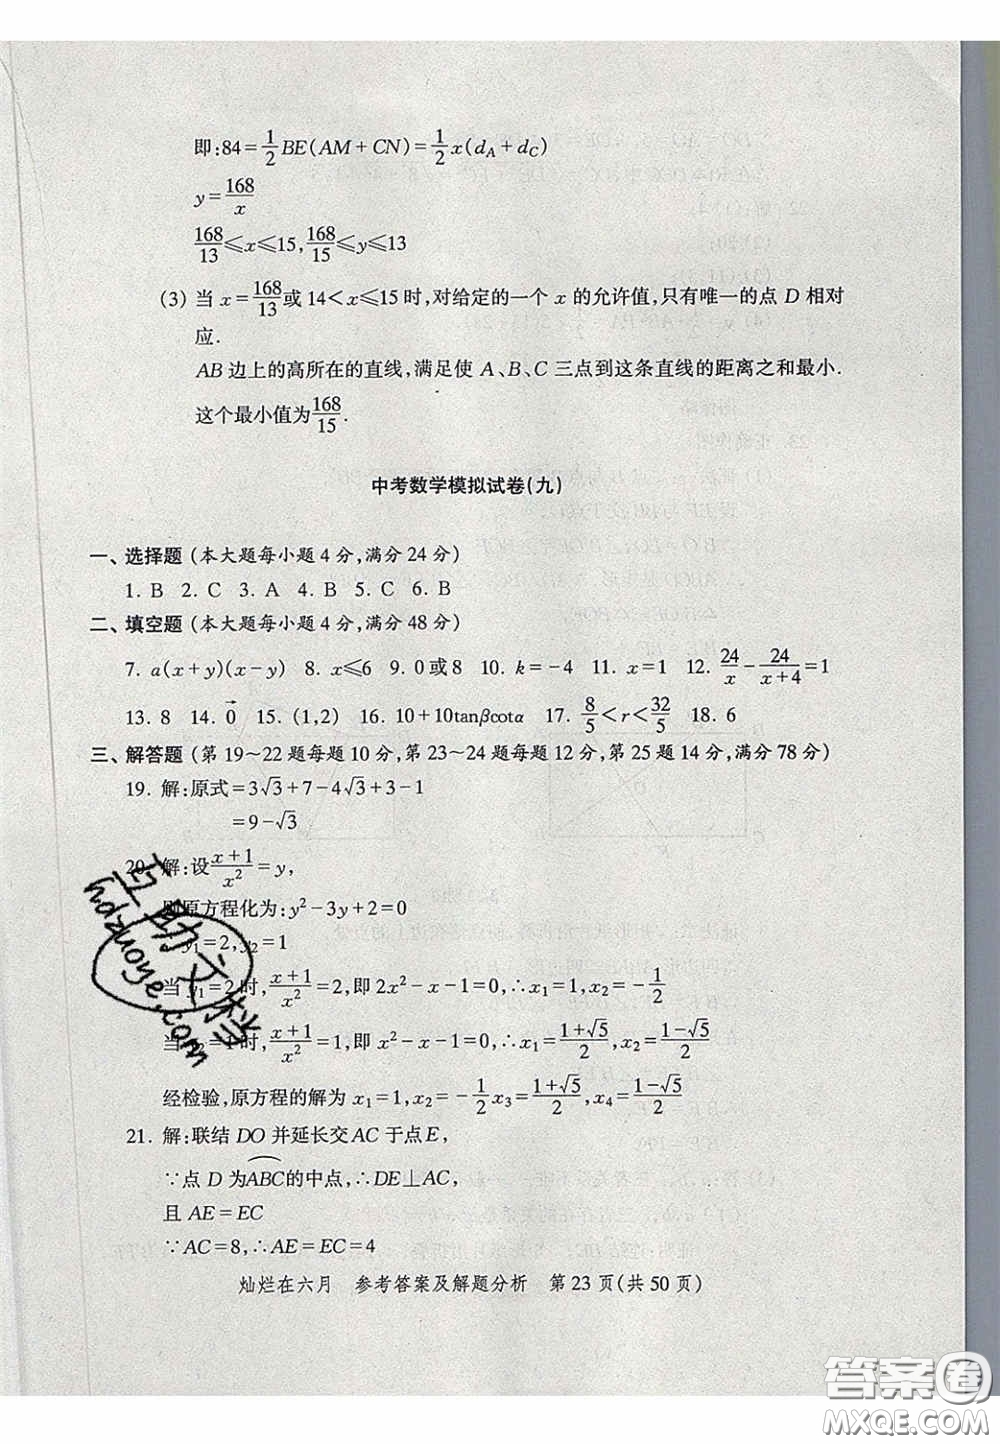 即:84=1/2 BE(AM+CN)=1/2 x(d_A+d_C)
y=168/x
168/13≤x≤15,168/15≤y≤13
(3) 当 x=168/13或 14<x≤15时,对给定的一个 x 的允许值,只有唯一的点 D 相对
应.
AB 边上的高所在的直线,满足使 A、B、C 三点到这条直线的距离之和最小.
这个最小值为168/15.
中考数学模拟试卷(九)
一、选择题 (本大题每小题 4 分,满分 24 分)
1. B 2. C 3. A 4. B 5. C 6. B
二、填空题 (本大题每小题 4 分,满分 48 分)
7. a(x+y)(x-y) 8. x≤6 9. 0或8 10. k=-4 11. x=1 12. 24/x-24/(x+4)=1
13. 8 14. 0⃗ 15. (1,2) 16. 10+10tanβcotα 17. 8/5<r<32/5 18. 6
三、解答题 (第 19~22 题每题 10 分,第 23~24 题每题 12 分,第 25 题 14 分,满分 78 分)
19. 解:原式=3√3+7-4√3+3-1
=9-√3
20. 解:设(x+1)/x²=y,
则原方程化为:y²-3y+2=0
y₁=2,y₂=1
当 y₁=2时,(x+1)/x²=2,即2x²-x-1=0,∴x₁=1,x₂=-1/2
当 y₂=1时,(x+1)/x²=1,即 x²-x-1=0,∴x₁=(1+√5)/2,x₂=(1-√5)/2
经检验,原方程的解为 x₁=1,x₂=-1/2 x₃=(1+√5)/2,x₄=(1-√5)/2
21. 解:联结 DO 并延长交 AC 于点 E,
∵点 D 为⌒ABC的中点,∴DE⊥AC,
且 AE=EC
∵AC=8,∴AE=EC=4
灿烂在六月 参考答案及解题分析 第 23 页(共 50 页)
互助文档
hdzuoye.com
答案圈
MXQE.COM